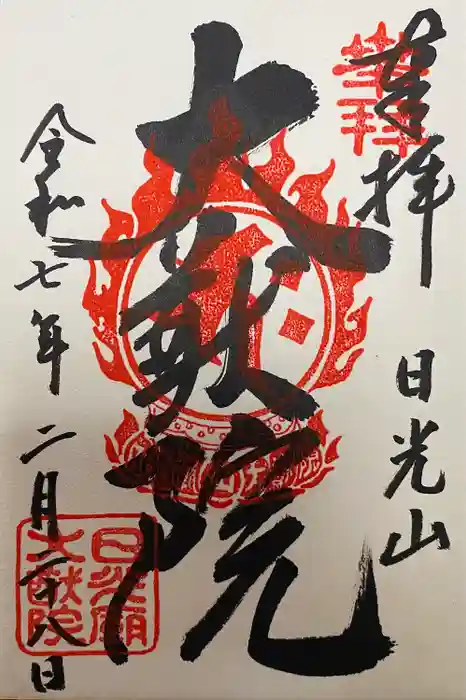 奉拝
日光山
大猷院
令和七年二月二十八日
日光廟
大猷院